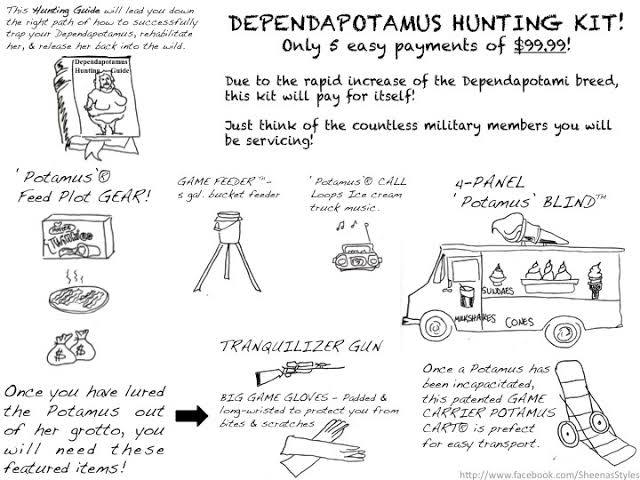 This Hunting Guide will lead you down
the right path of how to successfully
trap your Dependapotamus, rehabilitate
her, & release her back into the wild.
DEPENDAPOTAMUS HUNTING KIT!
Only 5 easy payments of $99.99!
Due to the rapid increase of the Dependapotami breed,
this kit will pay for itself!
Just think of the countless military members you will
be servicing!
Dependapotamus
Hunting Guide
'Potamus'®
Feed Plot GEAR!
GAME FEEDER™-
5 gal. bucket feeder
'Potamus'® CALL
Loops Ice cream
truck music.
4-PANEL
'Potamus' BLIND™
SUNDAES
MILKSHAKES
CONES
$ $
TRANQUILIZER GUN
BIG GAME GLOVES - Padded &
long-wristed to protect you from
bites & scratches
Once you have lured
the Potamus out
of her grotto, you
will need these
featured items!
Once a Potamus has
been incapacitated,
this patented GAME
CARRIER POTAMUS
CART® is prefect
for easy transport.
http://www.facebook.com/SheenasStyles